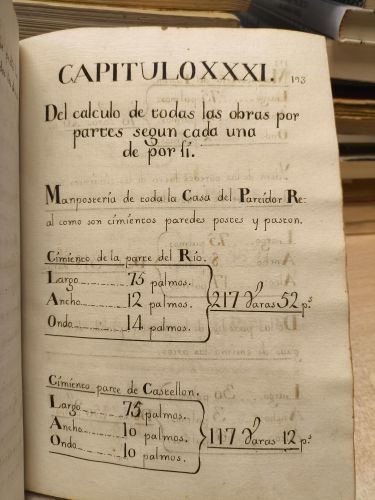 CAPITULO XXXI.
193
Del calculo de todas las obras por
partes segun cada una
de por sí.
Manposteria de toda la Casa del Partidor Re=
al como son cimientos paredes postes y paston.
Cimiento de la parte del Río.
Largo 75 palmos.
Ancho 12 palmos.
Ondo 14 palmos.
217 Varas 52 ps
Cimiento parte de Castellon.
Largo 75 palmos.
Ancho 10 palmos.
Ondo 10 palmos.
117 Varas 12 ps